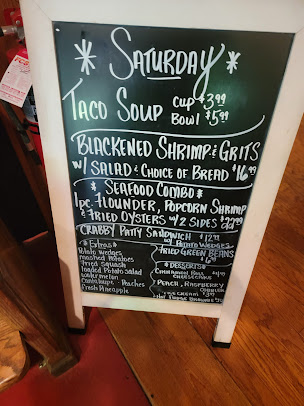 * SATURDAY *
TACO SOUP CUP $3.99
BOWL $5.99
BLACKENED SHRIMP & GRITS
W/ SALAD & CHOICE OF BREAD $16.99
* SEAFOOD COMBO *
1pc. FLOUNDER, POPCORN SHRIMP
& FRIED OYSTERS W/ 2 SIDES $22.99
CRABBY PATTY SANDWICH $12.99
W/ POTATO WEDGES
* Extras *
Potato wedges
mashed Potatoes
Fried squash
Loaded Potato salad
watermelon
Cantaloupe - Peaches
Fresh Pineapple
FRIED GREEN BEANS
* DESSERTS *
CINNAMON ROLL
CHEESECAKE
PEACH, RASPBERRY
COBBLER
ICE CREAM
HOT FUDGE BROWNIE